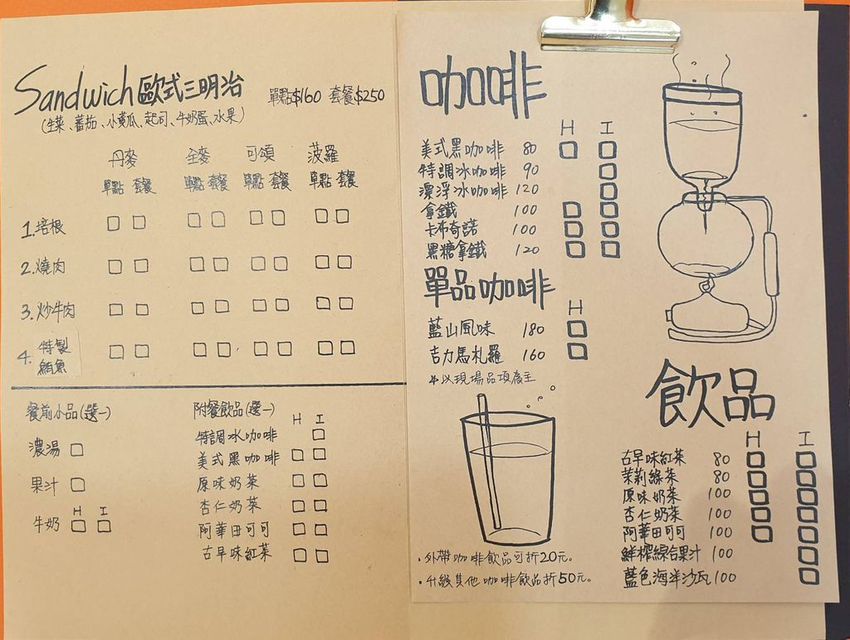 Sandwich 歐式三明治 單點$160 套餐$250
(生菜、蕃茄、小黃瓜、起司、牛奶蛋、水果)
丹麥 全麥 可頌 菠羅
單點 套餐 單點 套餐 單點 套餐 單點 套餐
1.培根
2.燒肉
3.炒牛肉
4.特製鮪魚
餐前小品(選一)
濃湯
果汁
H I
牛奶
附餐飲品(選一)
H I
特調冰咖啡
美式黑咖啡
原味奶茶
杏仁奶茶
阿華田可可
古早味紅茶
咖啡
H I
美式黑咖啡 80
特調冰咖啡 90
漂浮冰咖啡 120
拿鐵 100
卡布奇諾 100
黑糖拿鐵 120
單品咖啡
H
藍山風味 180
吉力馬札羅 160
*以現場品項為主
飲品
H I
古早味紅茶 80
茉莉綠茶 80
原味奶茶 100
杏仁奶茶 100
阿華田可可 100
鮮榨綜合果汁 100
藍色海洋沙瓦 100
·外帶咖啡飲品可折20元。
·升級其他咖啡飲品折50元。